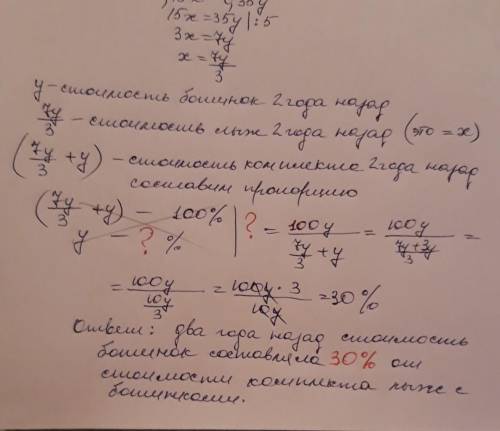 15x = 35y | :5
3x = 7y
x = 7y/3
y - стоимость ботинок 2 года назад
7y/3 - стоимость лыж 2 года назад (это = x)
(7y/3 + y) - стоимость комплекта 2 года назад
составим пропорцию
(7y/3 + y) - 100%
y - ? %
? = 100y / (7y/3 + y) = 100y / ((7y+3y)/3) =
= 100y / (10y/3) = 100y · 3 / 10y = 30%
Ответ: два года назад стоимость
ботинок составляла 30% от
стоимости комплекта лыж с
ботинками.